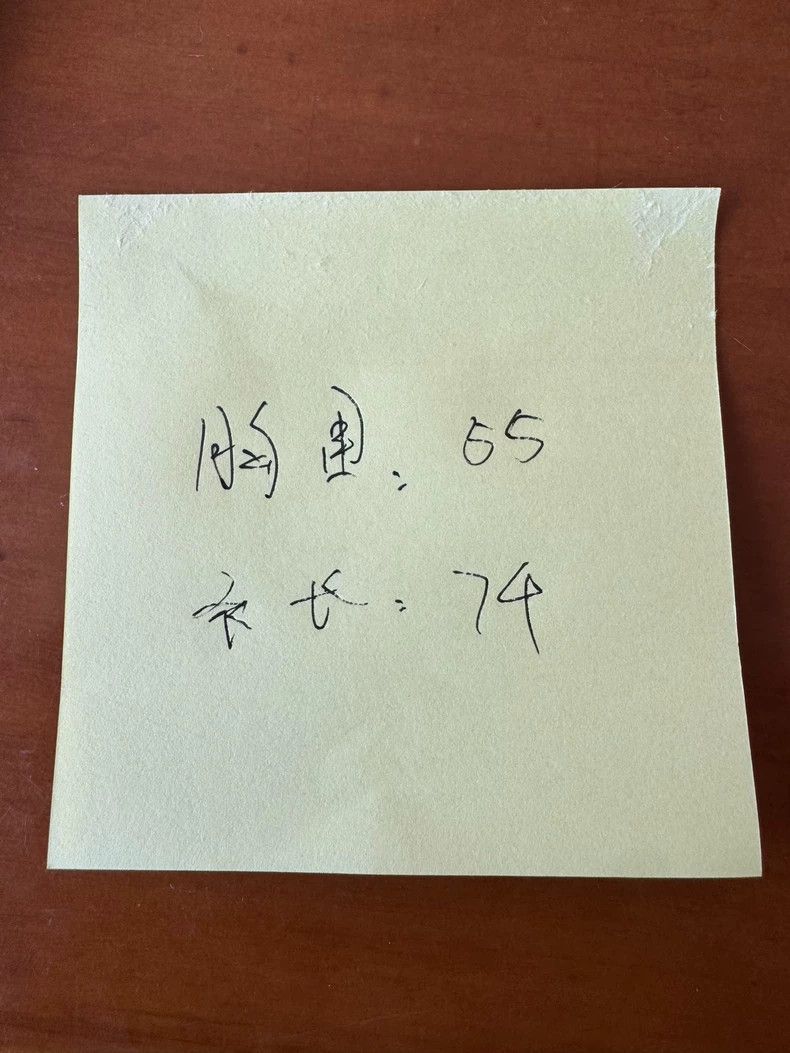 胸围：55
衣长：74